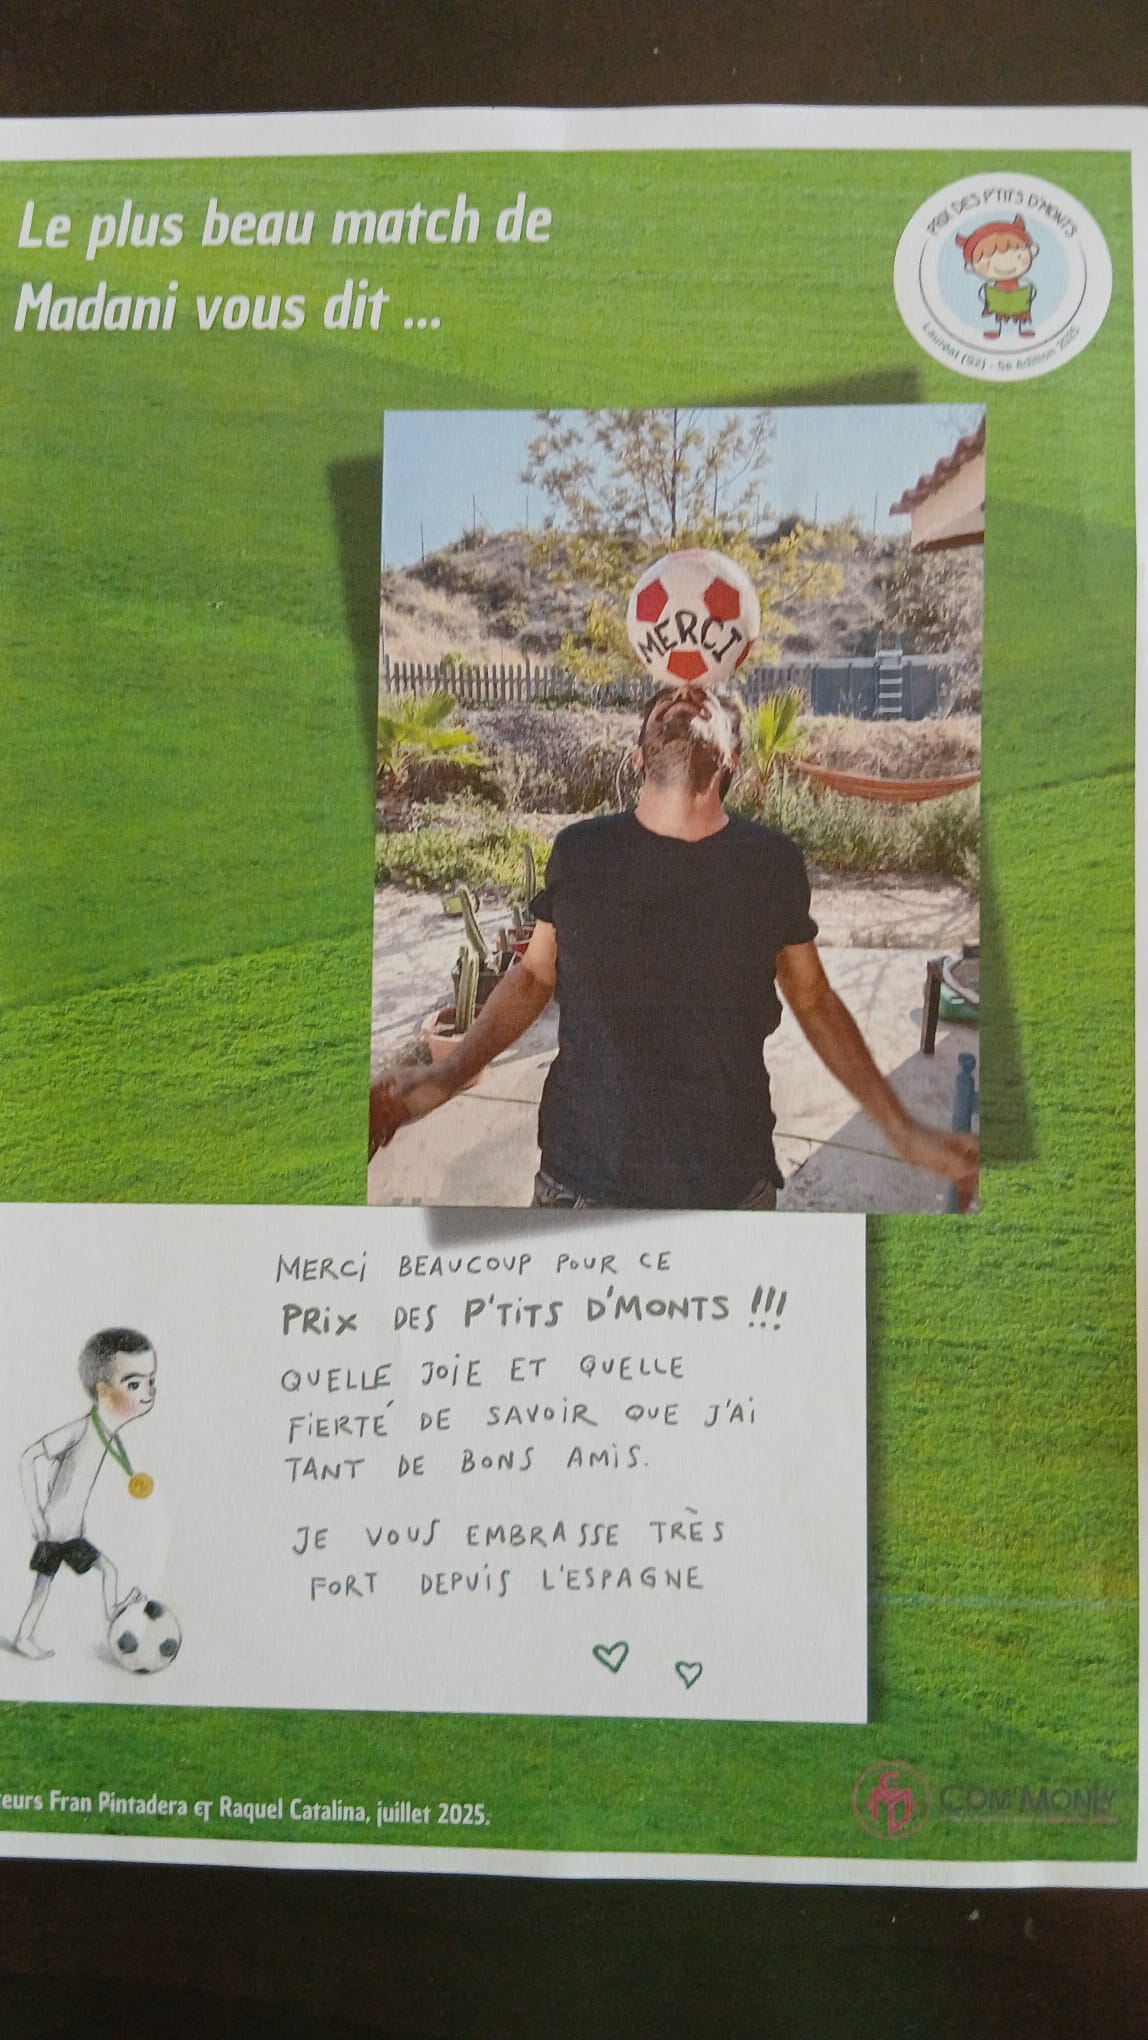 Le plus beau match de
Madani vous dit ...
PRIX DES P'TITS D'MONTS
Lauréat (S2) - 5e édition 2025
MERCI
MERCI BEAUCOUP POUR CE
PRIX DES P'TITS D'MONTS !!!
QUELLE JOIE ET QUELLE
FIERTÉ DE SAVOIR QUE J'AI
TANT DE BONS AMIS.
JE VOUS EMBRASSE TRÈS
FORT DEPUIS L'ESPAGNE
teurs Fran Pintadera et Raquel Catalina, juillet 2025.
COM'MONLY